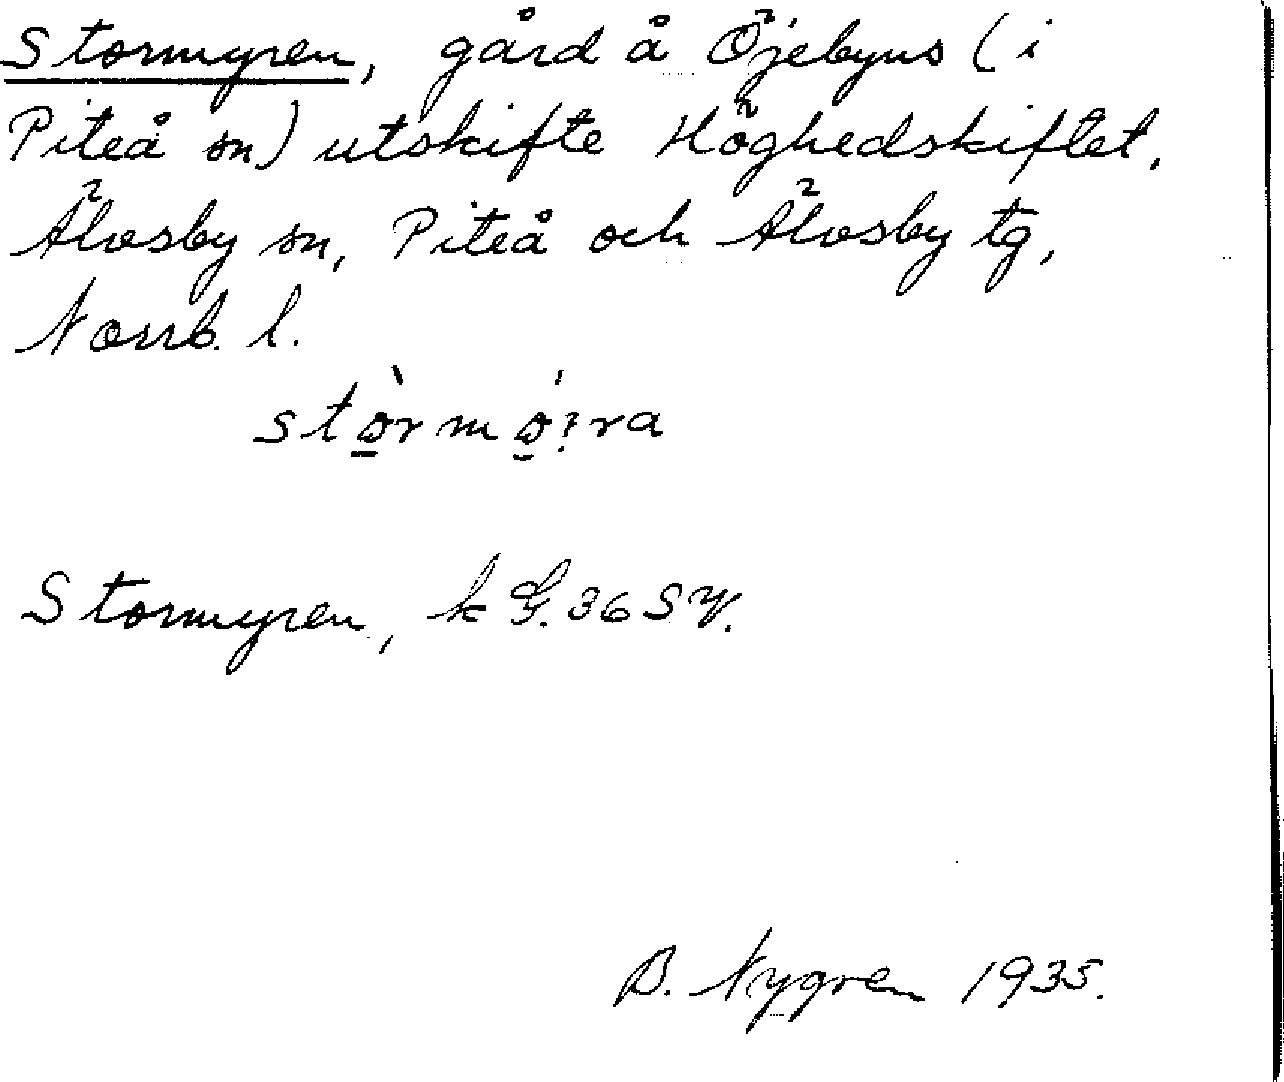 Stormyren, gård å Öjebyns (i
Piteå sn) utskifte Höghedskiftet,
Älvsby sn, Piteå och Älvsby tg,
Norrb. l.
stø̠̀rmǿ̠ịra
Stormyren, k G. 36 SV.
B. Nygren 1935.